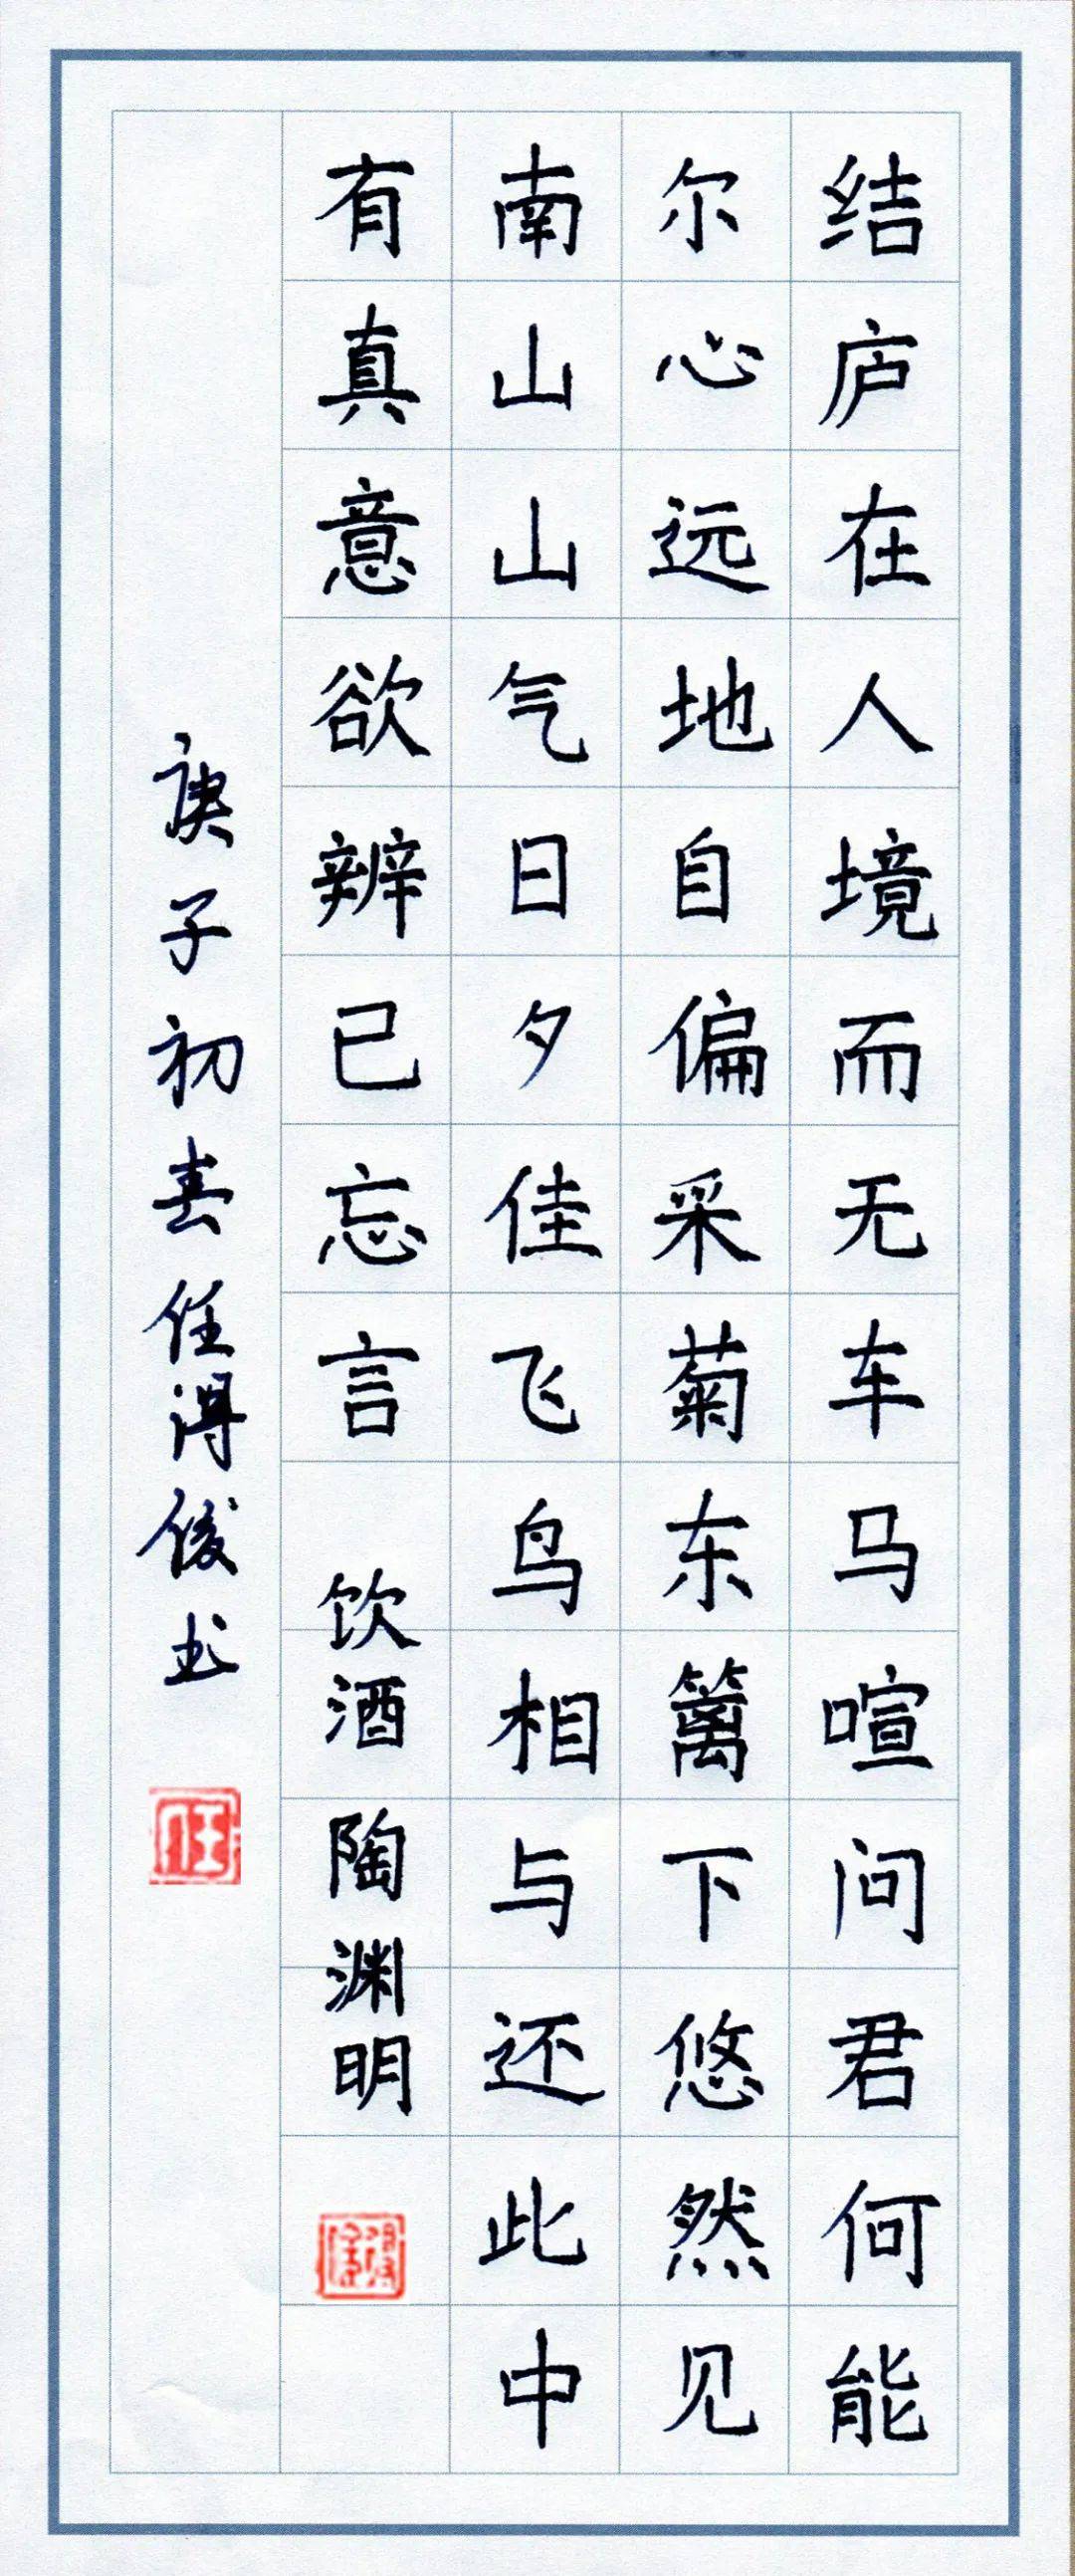 结庐在人境而无车马喧问君何能
尔心远地自偏采菊东篱下悠然见
南山山气日夕佳飞鸟相与还此中
有真意欲辨已忘言 饮酒 陶渊明
庚子初春任得俊书